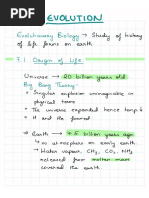 EVOLUTION
Evolutionary Biology → Study of history
of life forms on earth
7.1 Origin of Life.
Universe → 20 billion years old
Big Bang Theory-
• Singular explosion unimaginable in
physical terms
• The universe expanded hence temp ↓
• H and He formed.
→ Earth → 4.5 billion years ago
↳ no atmosphere on early earth.
↳ Water vapour, CH₄, CO₂, NH₃
released from molten mass
covered the earth.